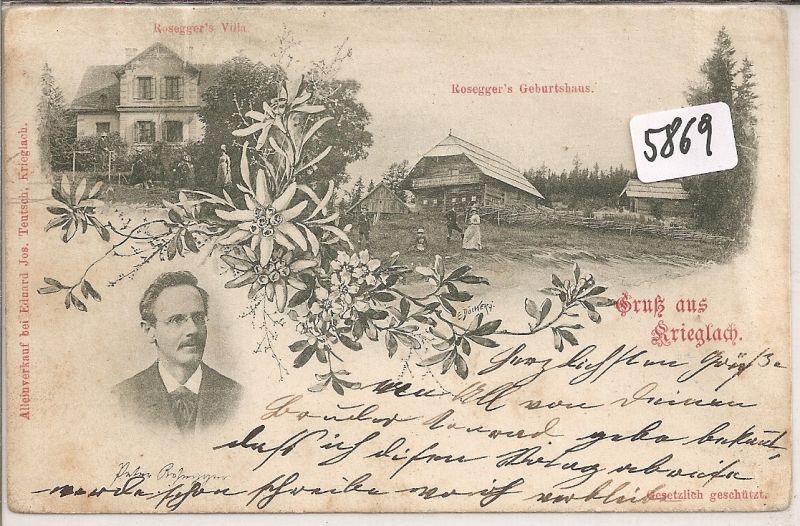 Rosegger's Villa
Rosegger's Geburtshaus.
5869
Alleinverkauf bei Eduard Jos. Teutsch, Krieglach.
Gruß aus
Krieglach.
Herzlichsten Grüße
von Deinem
Bruder Konrad gebe bekannt,
daß ich diesen abreise
werde schon schreibe wo ich verbleibe
Peter Rosegger
Gesetzlich geschützt.